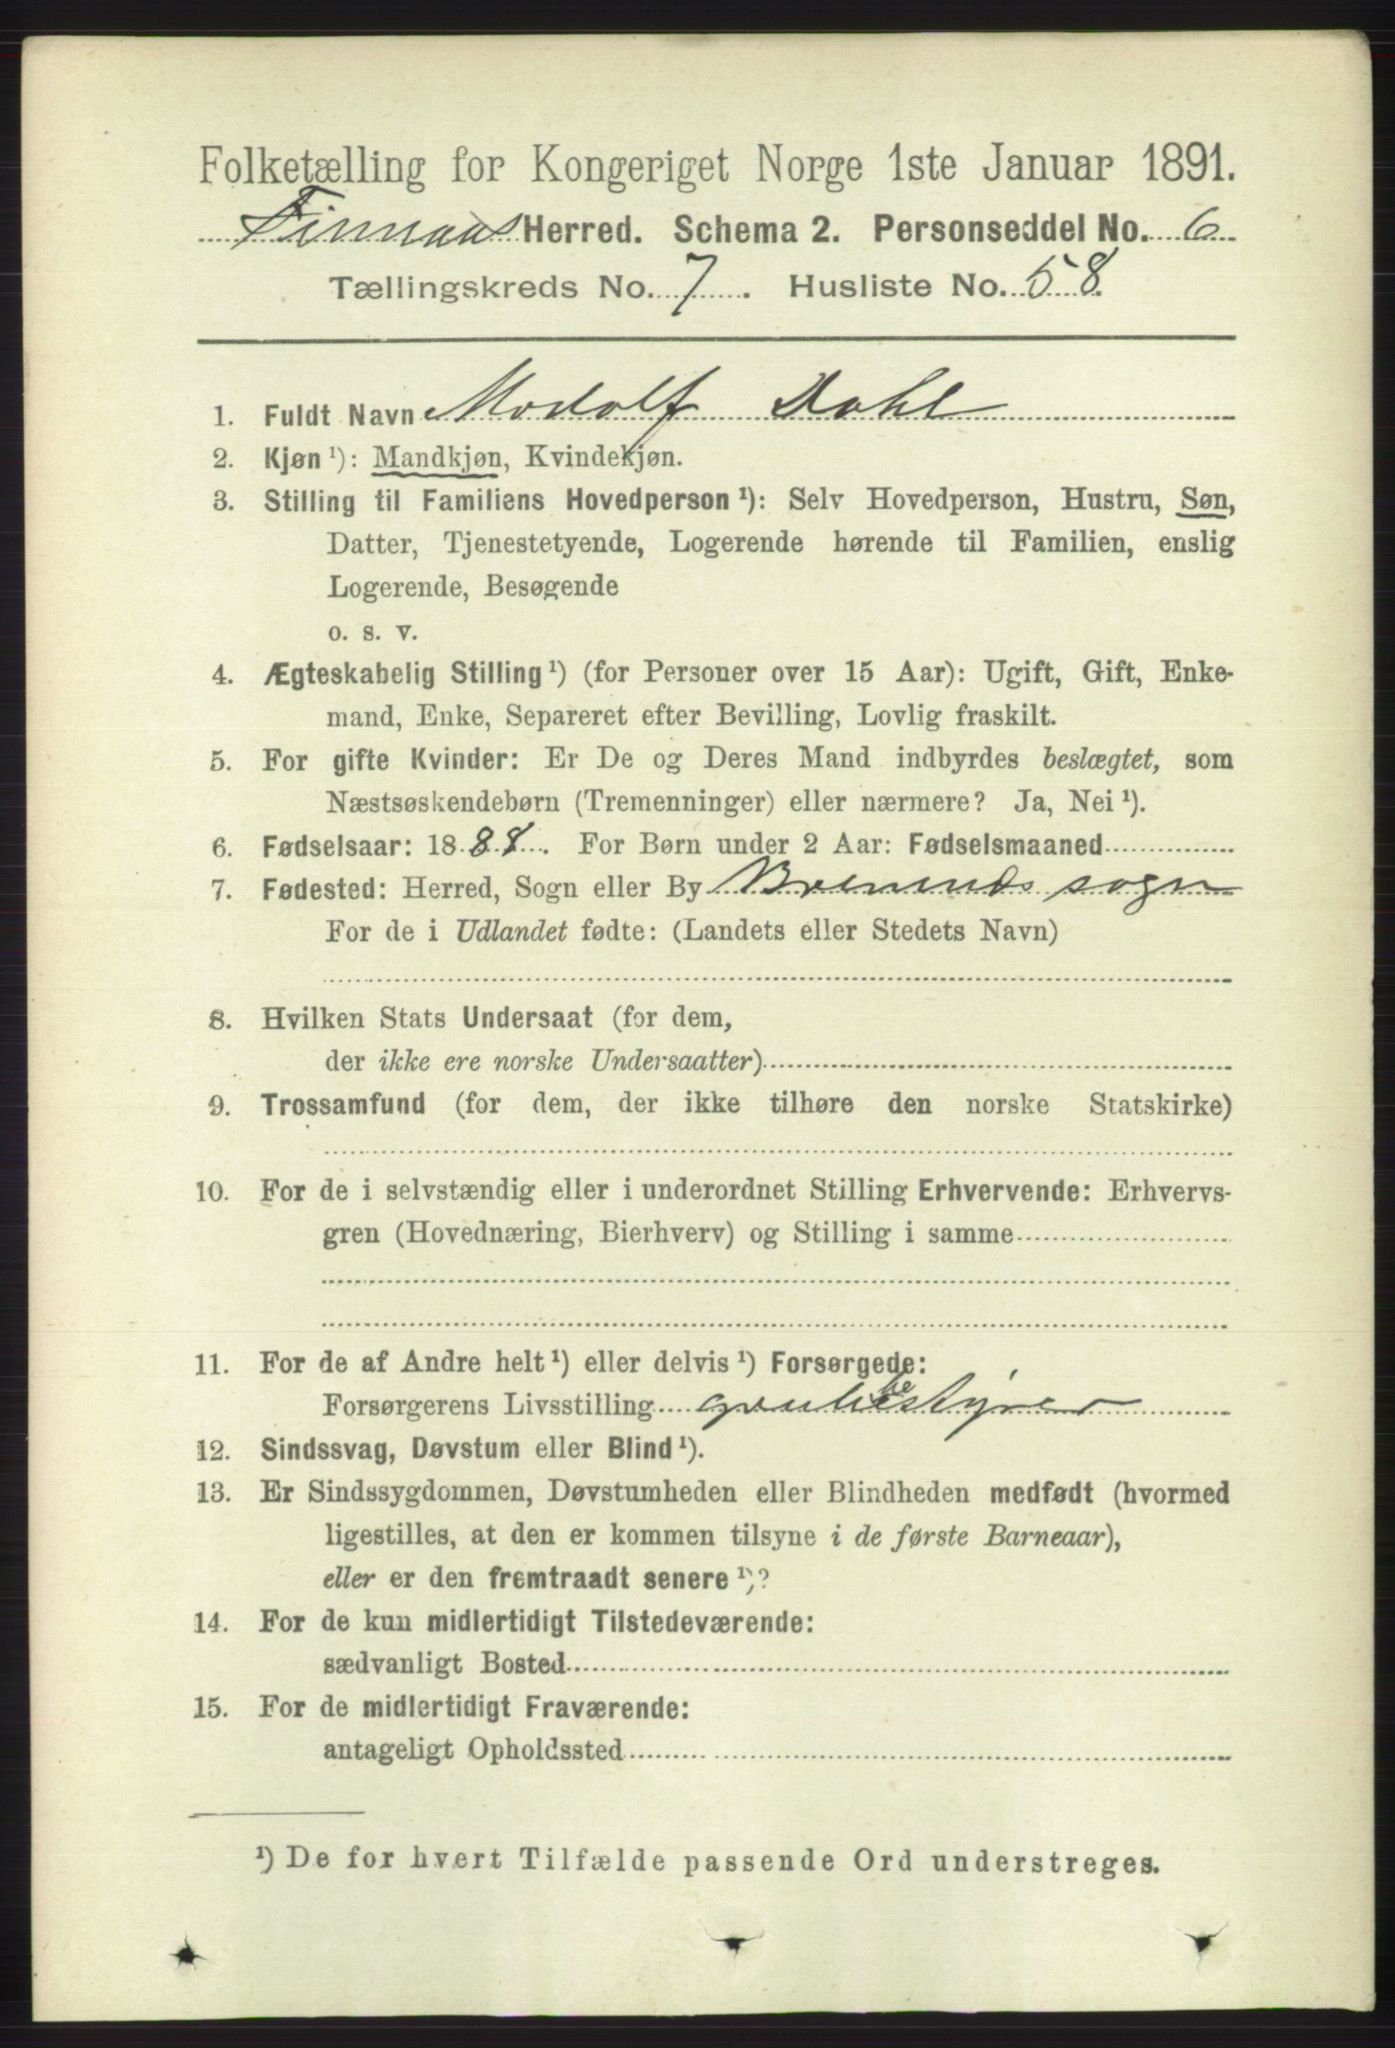 Folketælling for Kongeriget Norge 1ste Januar 1891.
Finnaas Herred. Schema 2. Personseddel No. 6
Tællingskreds No. 7. Husliste No. 58.
1. Fuldt Navn Modolf Dahl
2. Kjøn ¹): Mandkjøn, Kvindekjøn.
3. Stilling til Familiens Hovedperson ¹): Selv Hovedperson, Hustru, Søn,
Datter, Tjenestetyende, Logerende hørende til Familien, enslig
Logerende, Besøgende
o. s. v.
4. Ægteskabelig Stilling ¹) (for Personer over 15 Aar): Ugift, Gift, Enke-
mand, Enke, Separeret efter Bevilling, Lovlig fraskilt.
5. For gifte Kvinder: Er De og Deres Mand indbyrdes beslægtet, som
Næstsøskendebørn (Tremenninger) eller nærmere? Ja, Nei ¹).
6. Fødselsaar: 1888. For Børn under 2 Aar: Fødselsmaaned
7. Fødested: Herred, Sogn eller By Bremnds sogn
For de i Udlandet fødte: (Landets eller Stedets Navn)
8. Hvilken Stats Undersaat (for dem,
der ikke ere norske Undersaatter)
9. Trossamfund (for dem, der ikke tilhøre den norske Statskirke)
10. For de i selvstændig eller i underordnet Stilling Erhvervende: Erhvervs-
gren (Hovednæring, Bierhverv) og Stilling i samme
11. For de af Andre helt ¹) eller delvis ¹) Forsørgede:
Forsørgerens Livsstilling grubebestyrer
12. Sindssvag, Døvstum eller Blind ¹).
13. Er Sindssygdommen, Døvstumheden eller Blindheden medfødt (hvormed
ligestilles, at den er kommen tilsyne i de første Barneaar),
eller er den fremtraadt senere ¹)?
14. For de kun midlertidigt Tilstedeværende:
sædvanligt Bosted
15. For de midlertidigt Fraværende:
antageligt Opholdssted
¹) De for hvert Tilfælde passende Ord understreges.